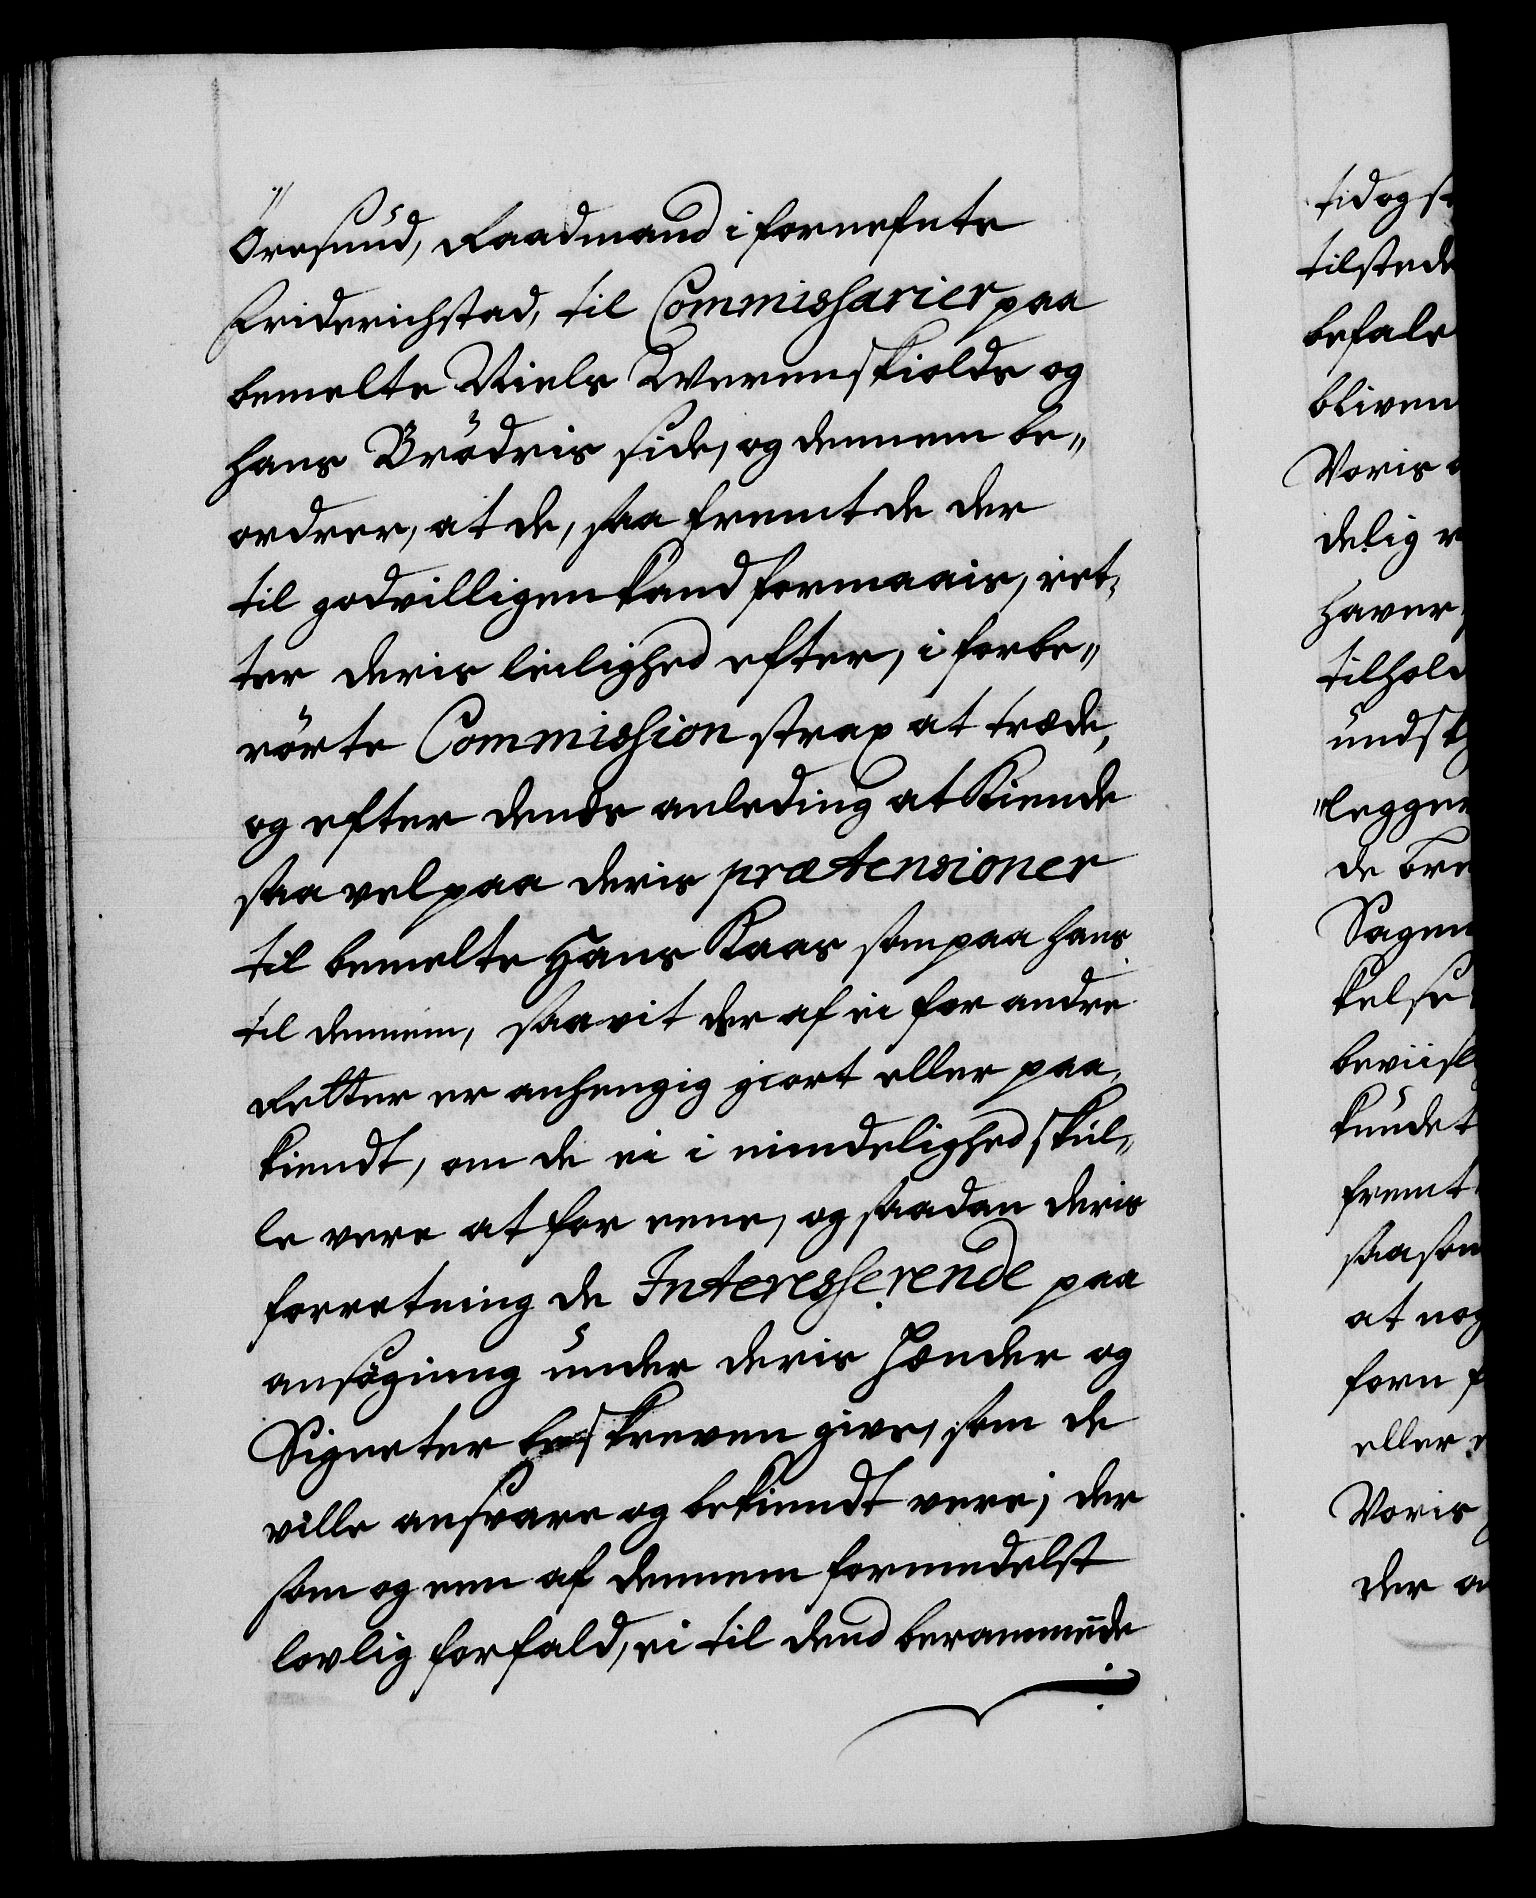 Öresund, Raadmand i fornefnte
Friderichstad, til Commissarier paa
bemelte Niels Werenskiolds og
hans Brödris side, og dennem be„
ordrer, at de, saa fremt de der
til godvilligen kand formaais, ret„
ter deris leilighed efter, i forbe„
rörte Commission strax at træde,
og efter dends anleding at kiende
saa vel paa deris prætensioner
til bemelte Hans Kaas som paa hans
til dennem, saavit der af ei for andre
Retter er anhengig giort eller paa„
kiendt, om de ei i mindelighed skul„
le vere at foreene, og saadan deris
forretning de Interesserende paa
ansögning under deris Hænder og
Signeter beskreven give, som de
ville ansvare og bekiendt vere; der
som og een af dennem formedelst
lovlig forfald, ei til dend berammede
tid og
tilstede
befale
bliven
Voris
delig
haver
tilhold
undsk
legge
de bre
Sagen
kelse
beviisl
kundet
fremt
saasom
at nog
forn
eller
Voris
der